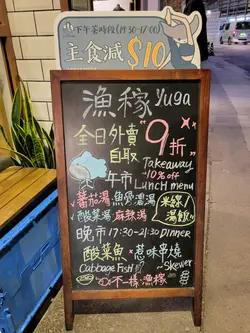 下午茶時段(14:30-17:00)
主食減$10
漁稼 Yuga
全日外賣
自取
"9折"
Takeaway
-10% off
午市 Lunch menu
番茄湯 魚骨濃湯
酸菜湯 麻辣湯
米線
湯飯
晚市 17:30-21:30 Dinner
酸菜魚 惹味串燒
Cabbage Fish ~Skewer
不一樣漁稼